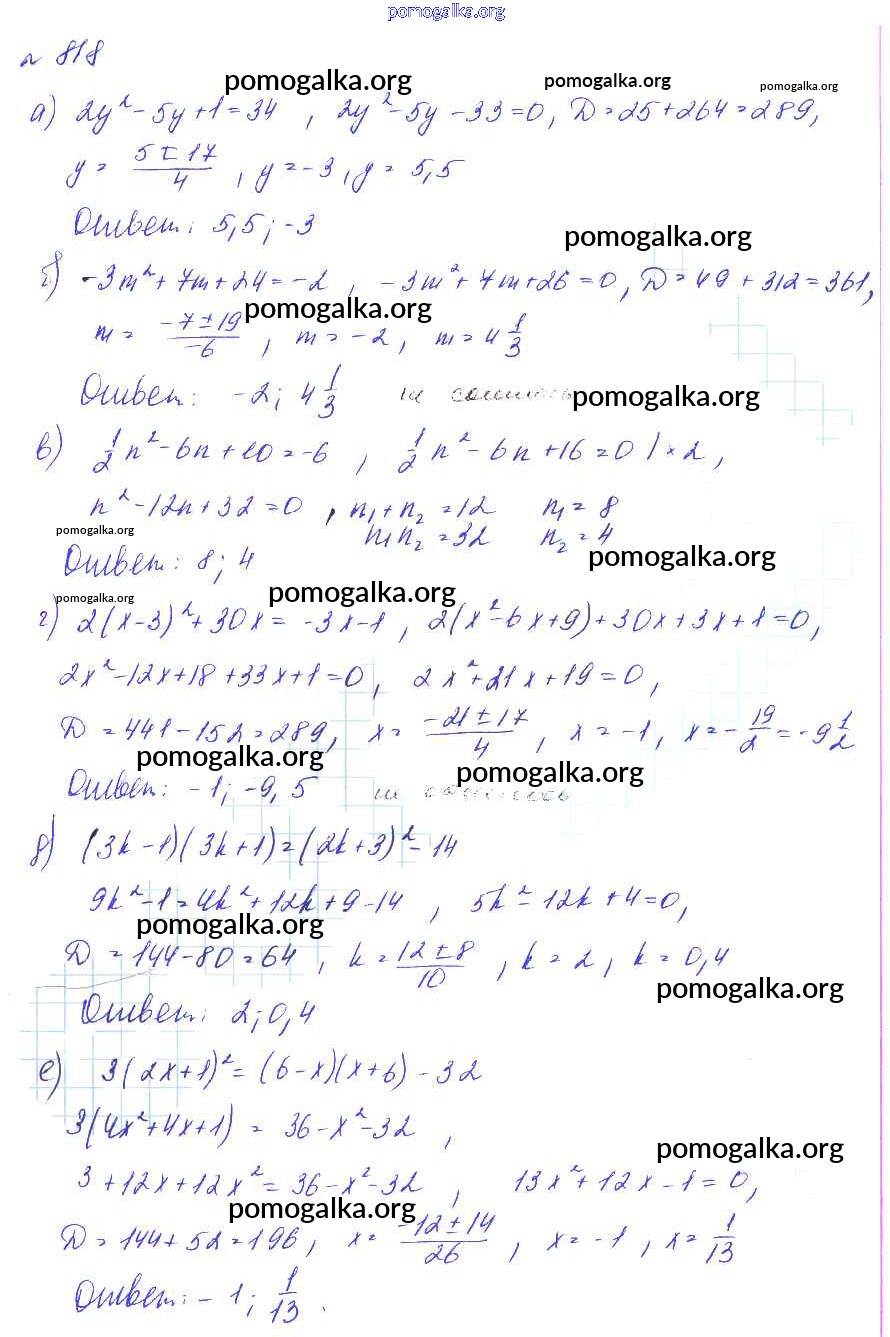 pomogalka.org
№ 818
pomogalka.org pomogalka.org pomogalka.org
а) 2y² - 5y + 1 = 34 , 2y² - 5y - 33 = 0, D = 25 + 264 = 289,
y = (5 ± 17)/4 , y = -3 , y = 5,5
Ответ: 5,5; -3
pomogalka.org
б) -3m² + 7m + 24 = -2 , -3m² + 7m + 26 = 0, D = 49 + 312 = 361,
pomogalka.org
m = (-7 ± 19)/-6 , m = -2 , m = 4 1/3
Ответ: -2; 4 1/3 не сошлось
pomogalka.org
в) 1/2 n² - 6n + 10 = -6 , 1/2 n² - 6n + 16 = 0 | × 2 ,
n² - 12n + 32 = 0 , n₁ + n₂ = 12 n₁ = 8
pomogalka.org n₁n₂ = 32 n₂ = 4
Ответ: 8; 4 pomogalka.org
pomogalka.org pomogalka.org
г) 2(x-3)² + 30x = -3x-1 , 2(x² - 6x + 9) + 30x + 3x + 1 = 0,
2x² - 12x + 18 + 33x + 1 = 0 , 2x² + 21x + 19 = 0 ,
D = 441 - 152 = 289, x = (-21 ± 17)/4 , x = -1 , x = -19/2 = -9 1/2
pomogalka.org pomogalka.org
Ответ: -1; -9,5 не сошлось
д) (3k-1)(3k+1) = (2k+3)² - 14
9k² - 1 = 4k² + 12k + 9 - 14 , 5k² - 12k + 4 = 0,
pomogalka.org
D = 144 - 80 = 64 , k = (12 ± 8)/10 , k = 2 , k = 0,4
pomogalka.org
Ответ: 2; 0,4
е) 3(2x+1)² = (6-x)(x+6) - 32
3(4x² + 4x + 1) = 36 - x² - 32 ,
pomogalka.org
3 + 12x + 12x² = 36 - x² - 32 , 13x² + 12x - 1 = 0,
pomogalka.org
D = 144 + 52 = 196, x = (-12 ± 14)/26 , x = -1 , x = 1/13
Ответ: -1; 1/13.